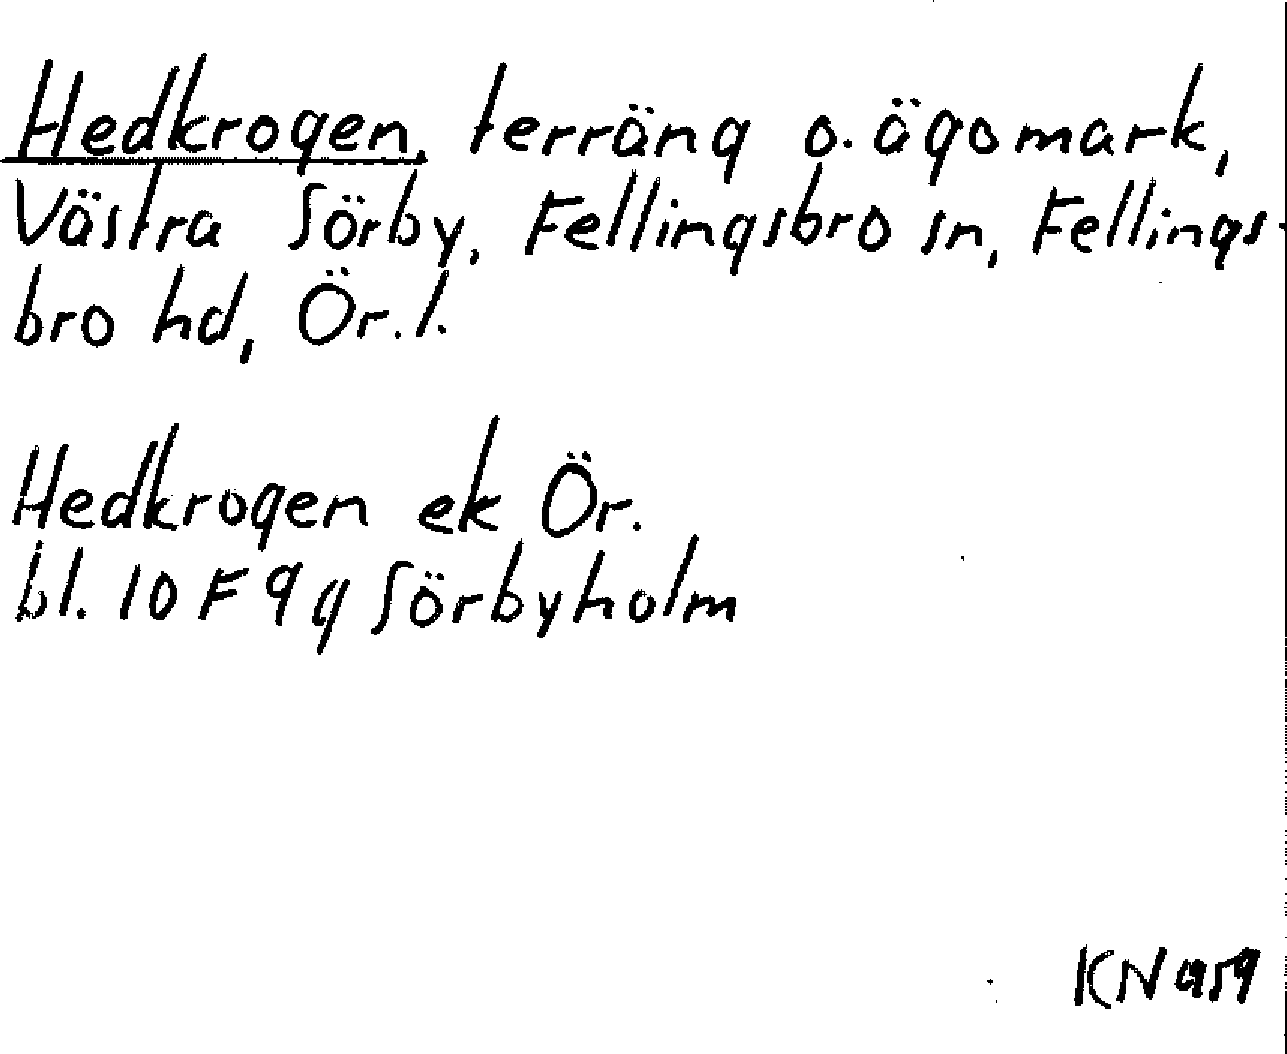 Hedkrogen, terräng o. ägomark,
Västra Sörby, Fellingsbro sn, Fellings-
bro hd, Ör. l.
Hedkrogen ek Ör.
bl. 10 F 9 g Sörbyholm
KN